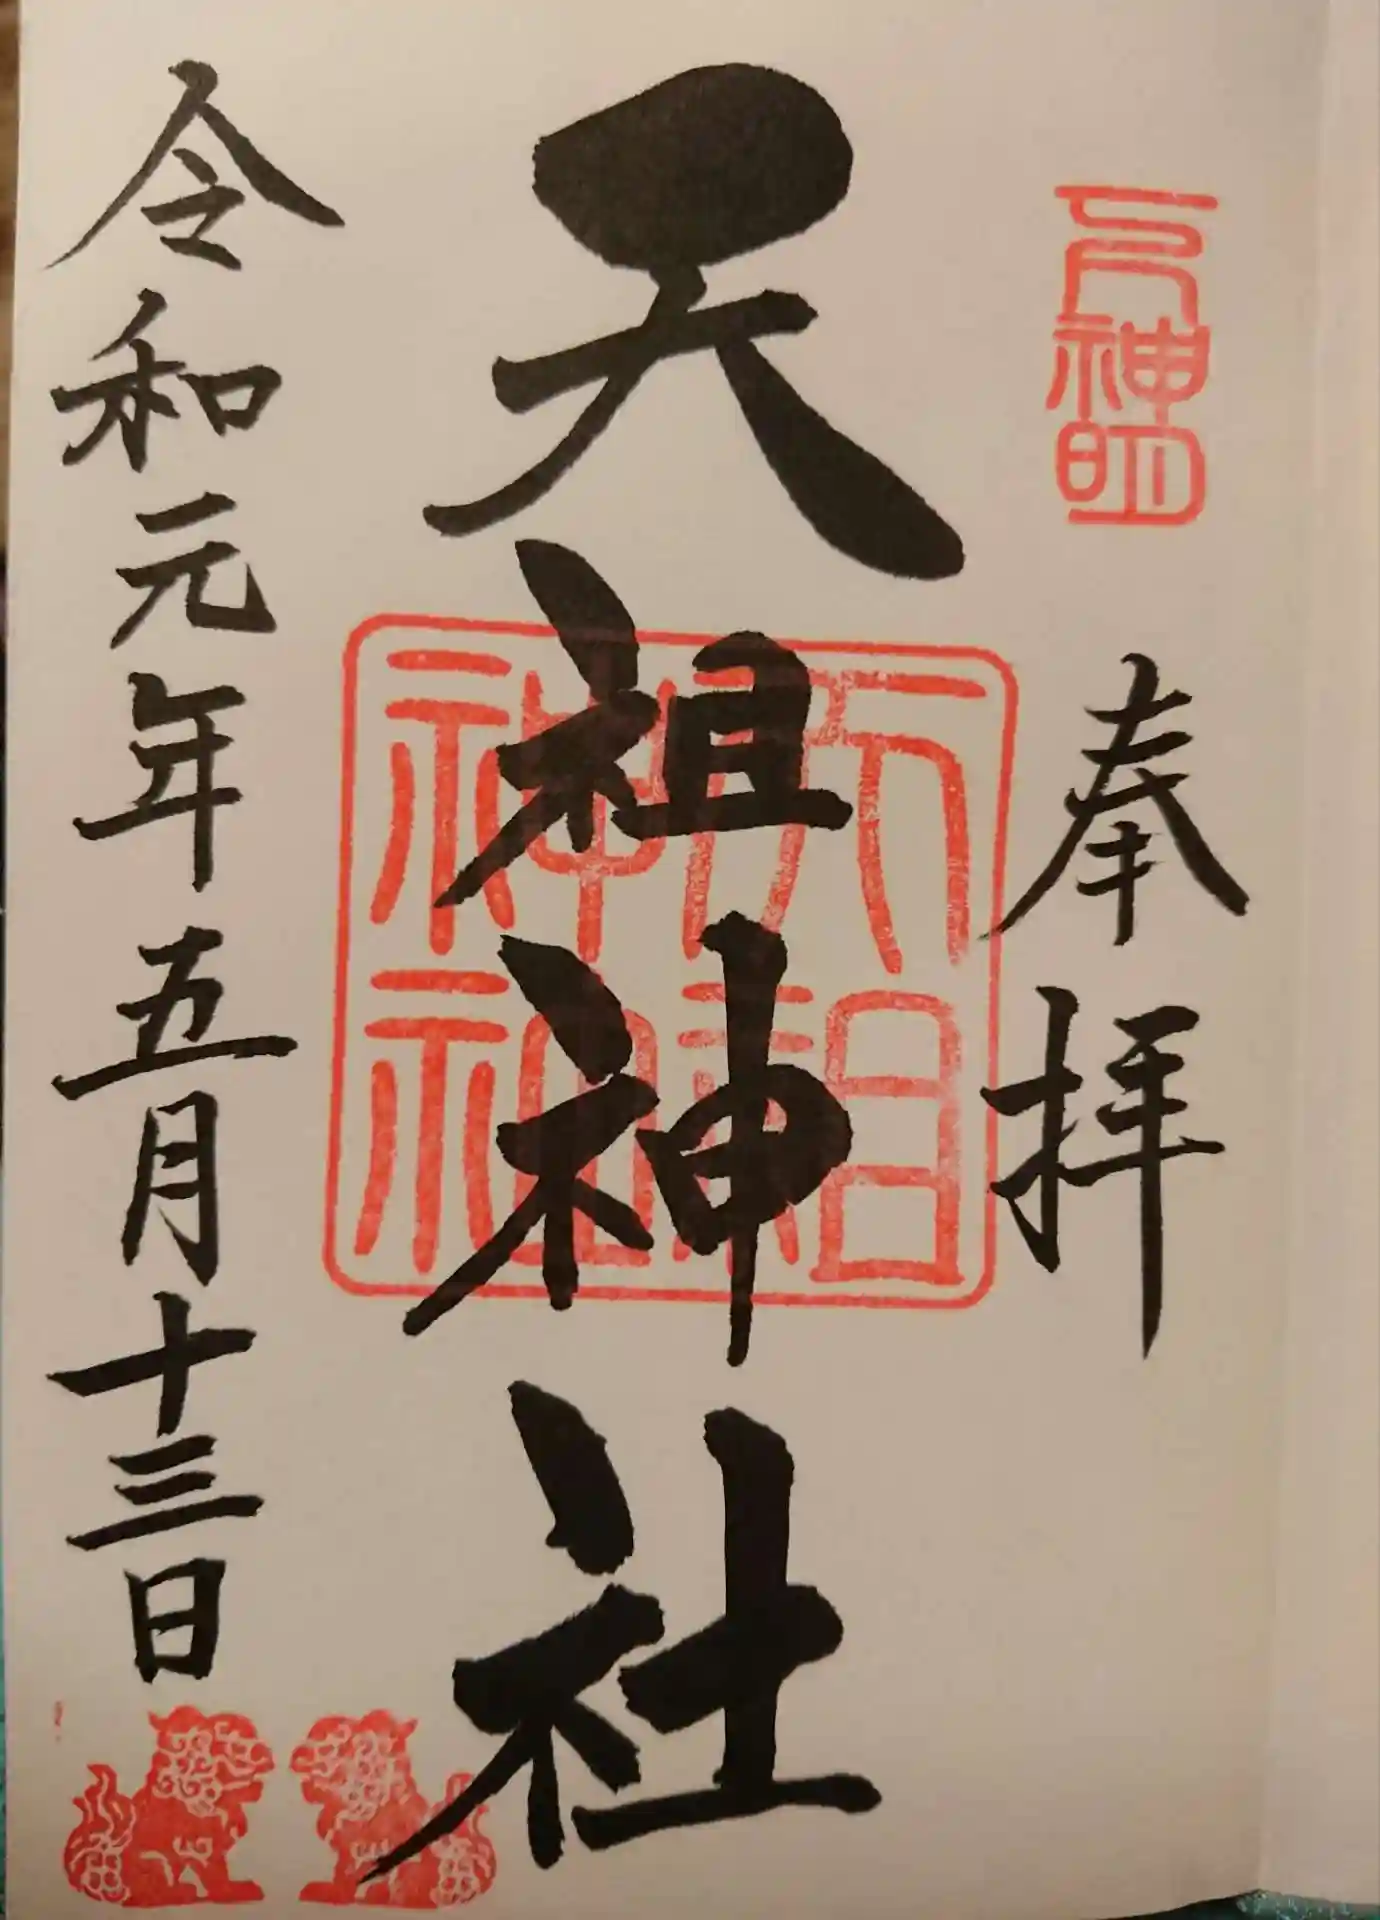 下神明
奉拝
天祖神社
天祖
神社
令和元年五月十三日